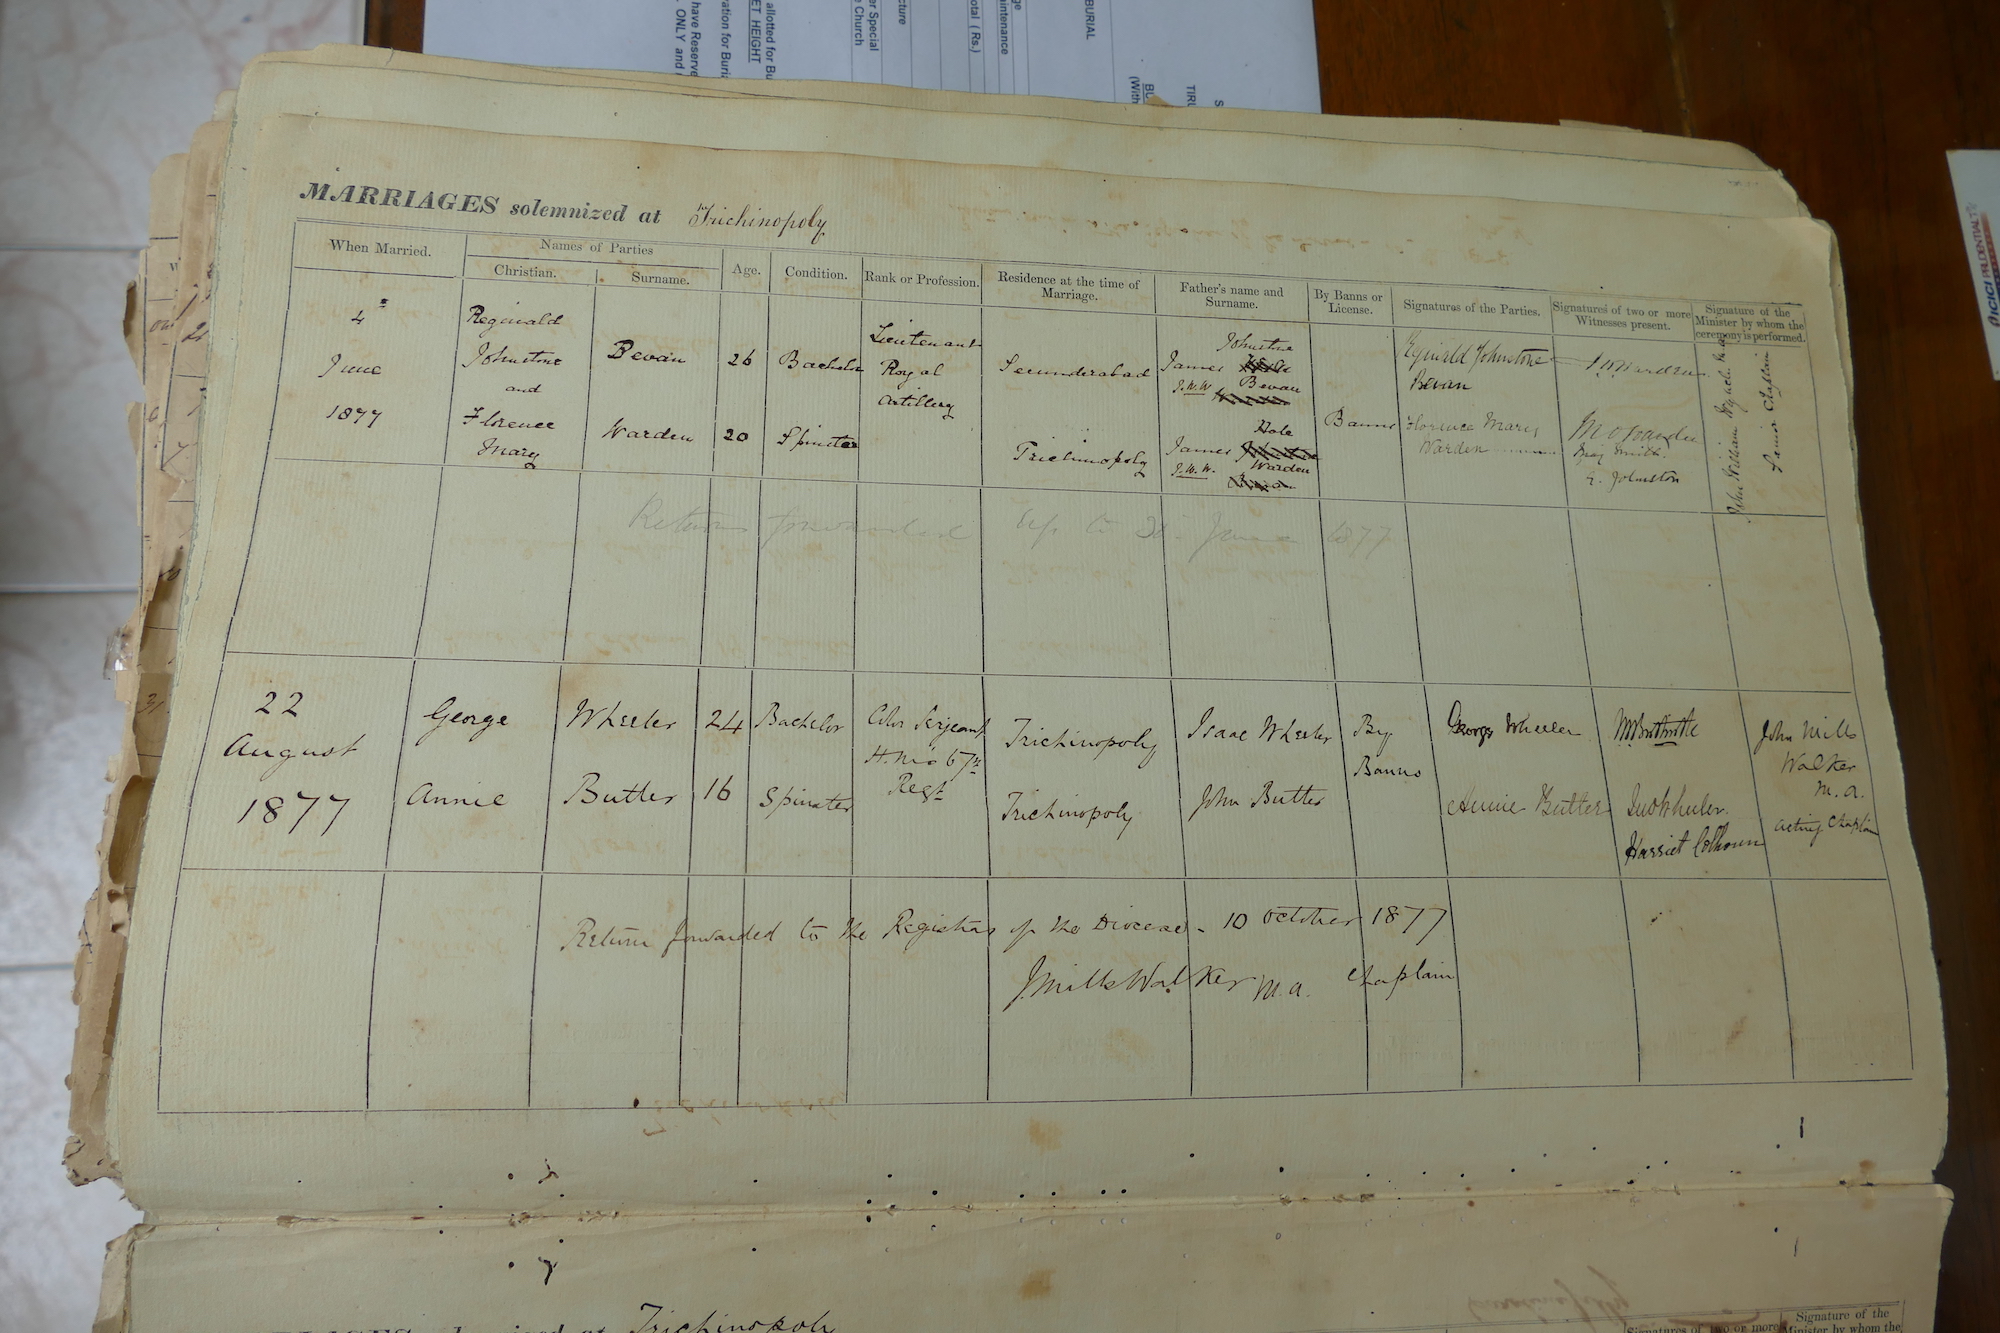 BURIAL
MARRIAGES solemnized at Trichinopoly
When Married.
Names of Parties
Christian.
Surname.
Age.
Condition.
Rank or Profession.
Residence at the time of
Marriage.
Father's name and
Surname.
By Banns or
License.
Signatures of the Parties.
Signatures of two or more
Witnesses present.
Signature of the
Minister by whom the
ceremony is performed.
4th
June
1877
Reginald
Johnstone
and
Florence
Mary
Bevan
Warden
26
20
Bachelor
Spinster
Lieutenant
Royal
Artillery
Secunderabad
Trichinopoly
Johnstone
James
J.W.W. Bevan
Hole
James
J.W.W. Warden
Banns
Reginald Johnstone
Bevan
Florence Mary
Warden
E. Johnston
John William Wynch
Senior Chaplain
Returns forwarded up to 30 June 1877
22
August
1877
George
Annie
Wheeler
Butler
24
16
Bachelor
Spinster
Color Serjeant
H.M's 67th
Regt
Trichinopoly
Trichinopoly
Isaac Wheeler
John Butler
By
Banns
George Wheeler
Annie Butler
Harriet Colhoun
John Mills
Walker
M.A.
Acting Chaplain
Return forwarded to the Registrar of the Diocese - 10 October 1877
J. Mills Walker M.A. Chaplain
Trichinopoly
Signature of the
Signatures of two or more
Minister by whom the
ICICI PRUDENTIAL